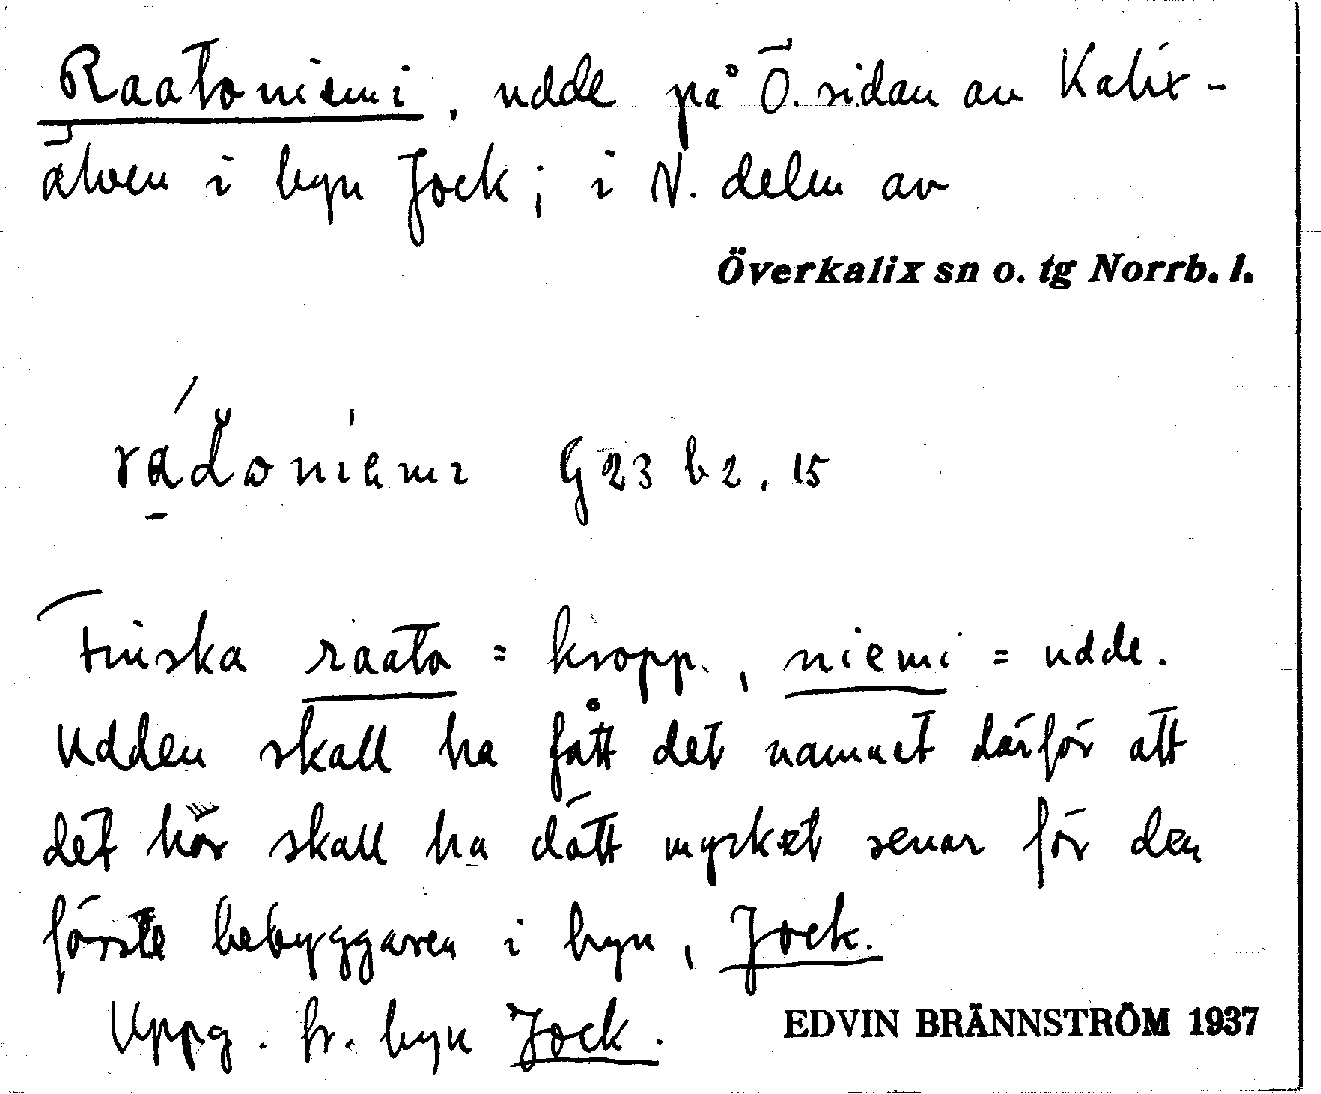 Raatoniemi, udde på Ö. sidan av Kalix-
älven i byn Jock; i N. delen av
Överkalix sn o. tg Norrb. l.
G 23 b 2, 15
Finska raato = kropp, niemi = udde.
Udden skall ha fått det namnet därför att
det här skall ha dött mycket renar för den
förste bebyggaren i byn, Jock.
Uppg. fr. byn Jock.
EDVIN BRÄNNSTRÖM 1937